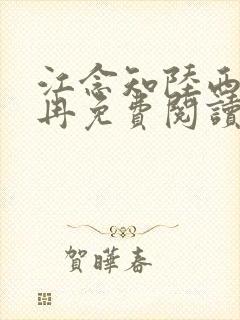 江念知陸西
再免費閱讀
賀曄春